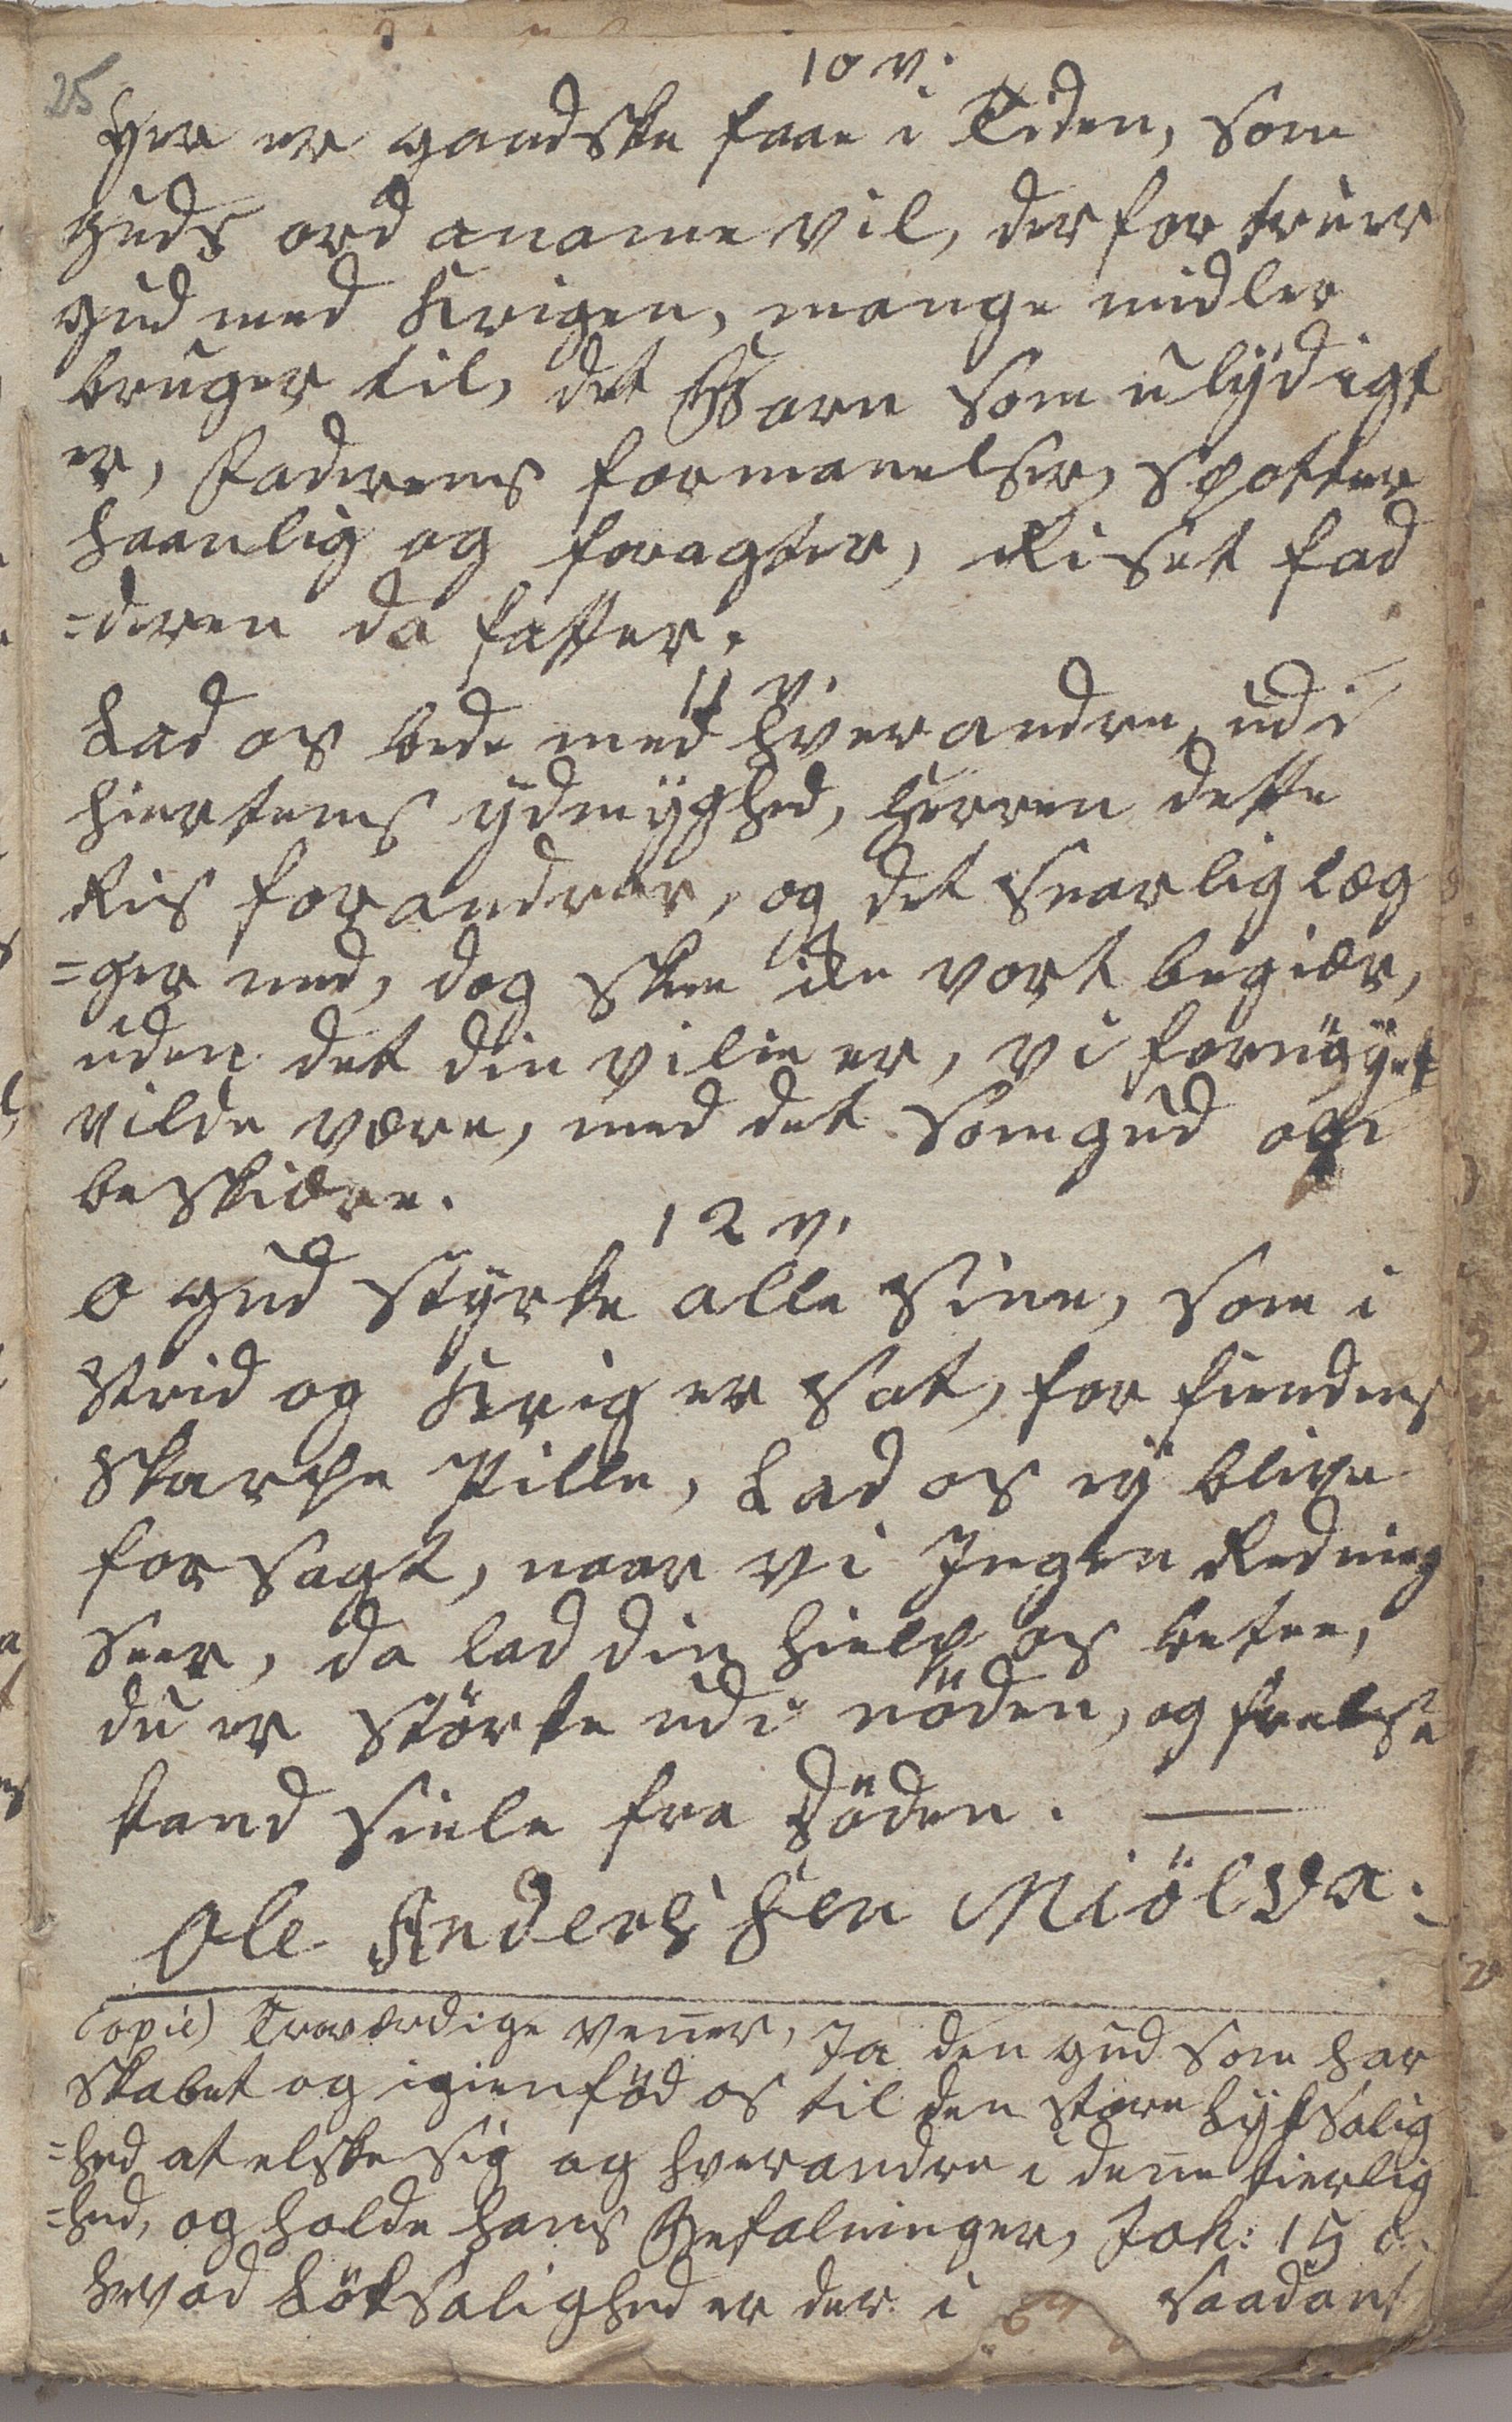 25
10 v:
Her er gandske faae i Tiden, som
Guds ord aname vil, der for truer
gud med Krigen, mange midler
bruger til, det Barn som ulÿdigt
er, Faderens formanelser, spotter
haanlig og foragter, Riset fad
=deren da fatter.
11 v.
Lad os bede med hverandre, udi
hiertens ÿdmÿghed, Herren dette
Riis forandrer, og det snarlig læg
=ger ned, dog skee ikke vort begiær,
uden det din vilie er, vi fornøÿet
vilde være, med det som gud os
beskiære.
12 v.
O gud stÿrke alle sine, som i
Strid og Krig er sat, for fienders
skarpe Pille, Lad os eÿ blive
forsagt, naar vi Ingen Redning
seer, da lad din hielp os betee,
du er störke udi nöden, og frelse
kand siele fra Döden.
Ole Andersen Miölva.
Copie) Troværdige venner, Ja den gud som har
skabet og igienföd os til den store Lÿksalig
=hed at elske sig og hverandre i denne kierlig
=hed, og holde hans Befalninger, Joh: 15 c.
hvad Löksalighed er der i saadant